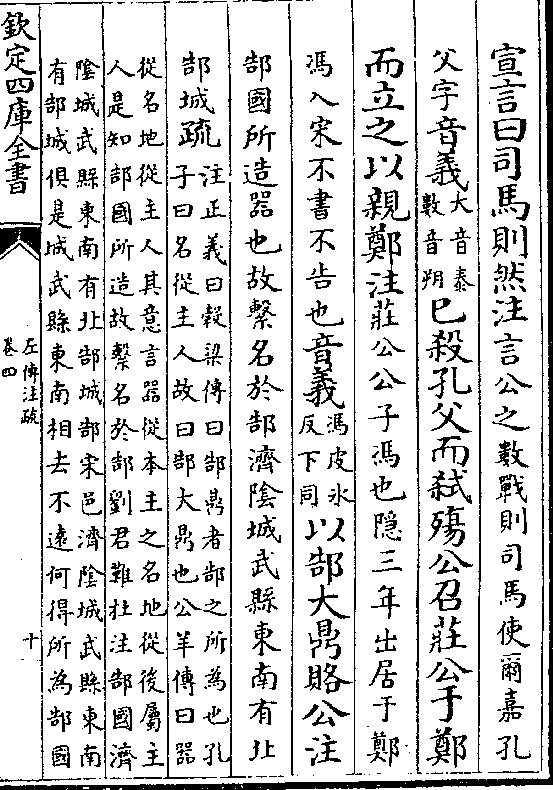 宣言曰司馬則然注言公之數戰則司馬使爾嘉孔
父字音義大音泰數音朔已殺孔父而弑殤公召莊公于鄭
而立之以親鄭注莊公公子馮也隱三年出居于鄭
馮入宋不書不告也音義馮皮氷反下同以郜大鼎賂公注
郜國所造器也故繫名於郜濟隂城武縣東南有北
郜城疏注正義曰穀梁傳曰郜鼎者郜之所為也孔
子曰名從主人故曰郜大鼎也公羊傳曰器
從名地從主人其意言器從本主之名地從後屬主
人是知郜國所造故繫名於郜劉君難杜注郜國濟
隂城武縣東南有北郜城郜宋邑濟隂城武縣東南
有郜城俱是城武縣東南相去不遠何得所為郜國
欽定四庫全書
左傳注疏
卷四
十